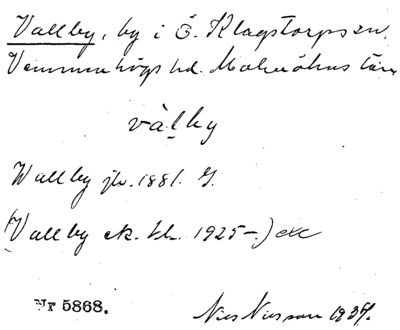 Vallby, by i Ö. Klagstorps sn,
Vemmenhögs hd. Malmöhus län
vàlby
Wallby jb. 1881. G.
(Vallby ek. bl. 1925-)
Nr 5868. Nils Nilsson 1934.